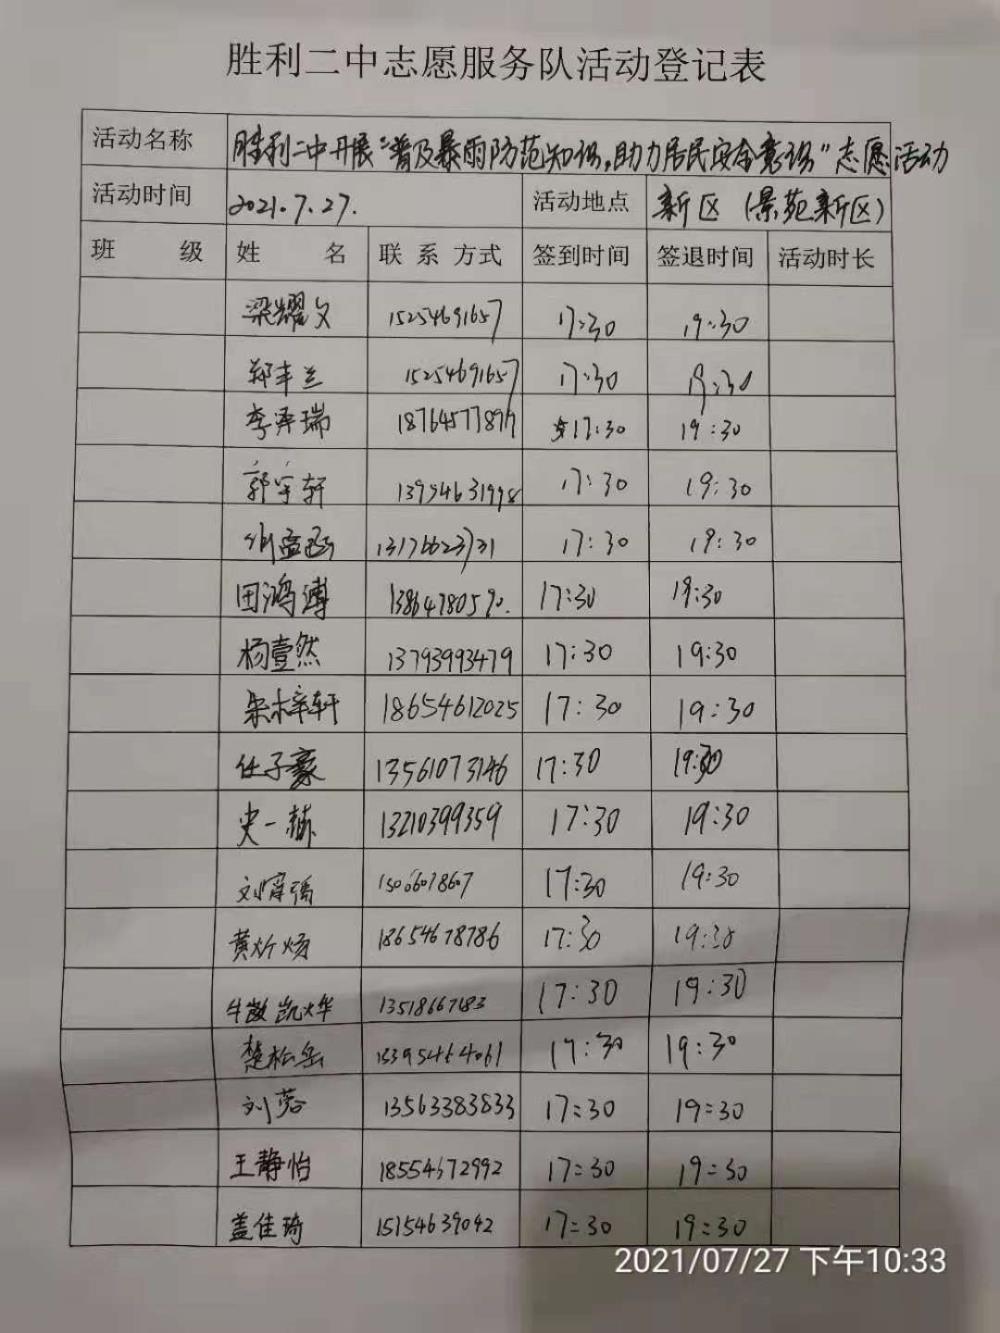 胜利二中志愿服务队活动登记表
活动名称 胜利二中开展“普及暴雨防范知识,助力居民安全意识”志愿活动
活动时间 2021.7.27. 活动地点 新区（景苑新区）
班 级 姓 名 联系方式 签到时间 签退时间 活动时长
梁耀文 15254691657 17:30 19:30
郑丰兰 15254691657 17:30 19:30
李泽瑞 18764577897 17:30 19:30
郭宇轩 13954631998 17:30 19:30
17:30 19:30
田鸿溥 17:30 19:30
杨壹然 13793993479 17:30 19:30
梓轩 18654612025 17:30 19:30
任子豪 13561073146 17:30 19:30
史一赫 13210399359 17:30 19:30
刘 17:30 19:30
黄炘炀 18654678786 17:30 19:30
凯烨 17:30 19:30
楚松岳 17:30 19:30
刘蓉 13563383833 17:30 19:30
王静怡 18554672992 17:30 19:30
盖佳琦 15154639042 17:30 19:30
2021/07/27 下午10:33